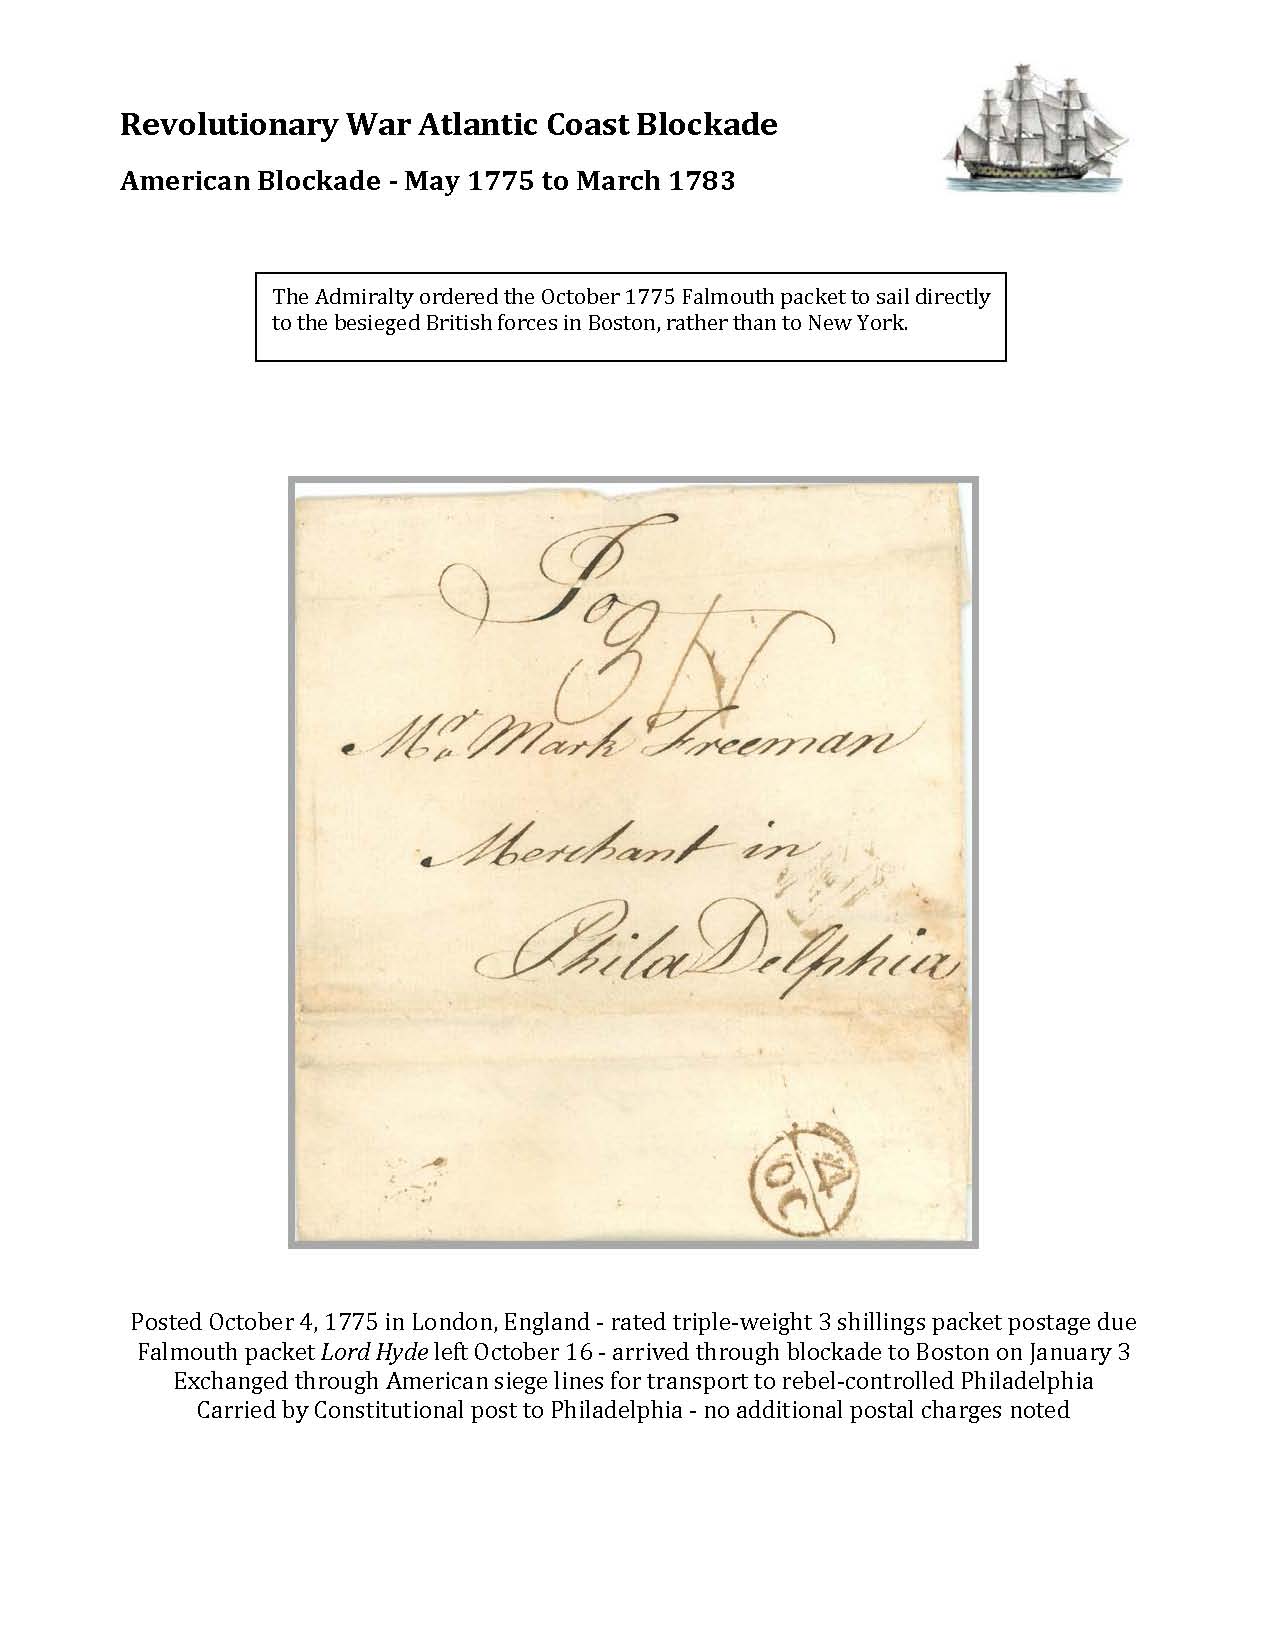 Revolutionary War Atlantic Coast Blockade
American Blockade - May 1775 to March 1783
The Admiralty ordered the October 1775 Falmouth packet to sail directly
to the besieged British forces in Boston, rather than to New York.
To
3N
Mr. Mark Freeman
Merchant in
PhilaDelphia
4
OC
Posted October 4, 1775 in London, England - rated triple-weight 3 shillings packet postage due
Falmouth packet Lord Hyde left October 16 - arrived through blockade to Boston on January 3
Exchanged through American siege lines for transport to rebel-controlled Philadelphia
Carried by Constitutional post to Philadelphia - no additional postal charges noted